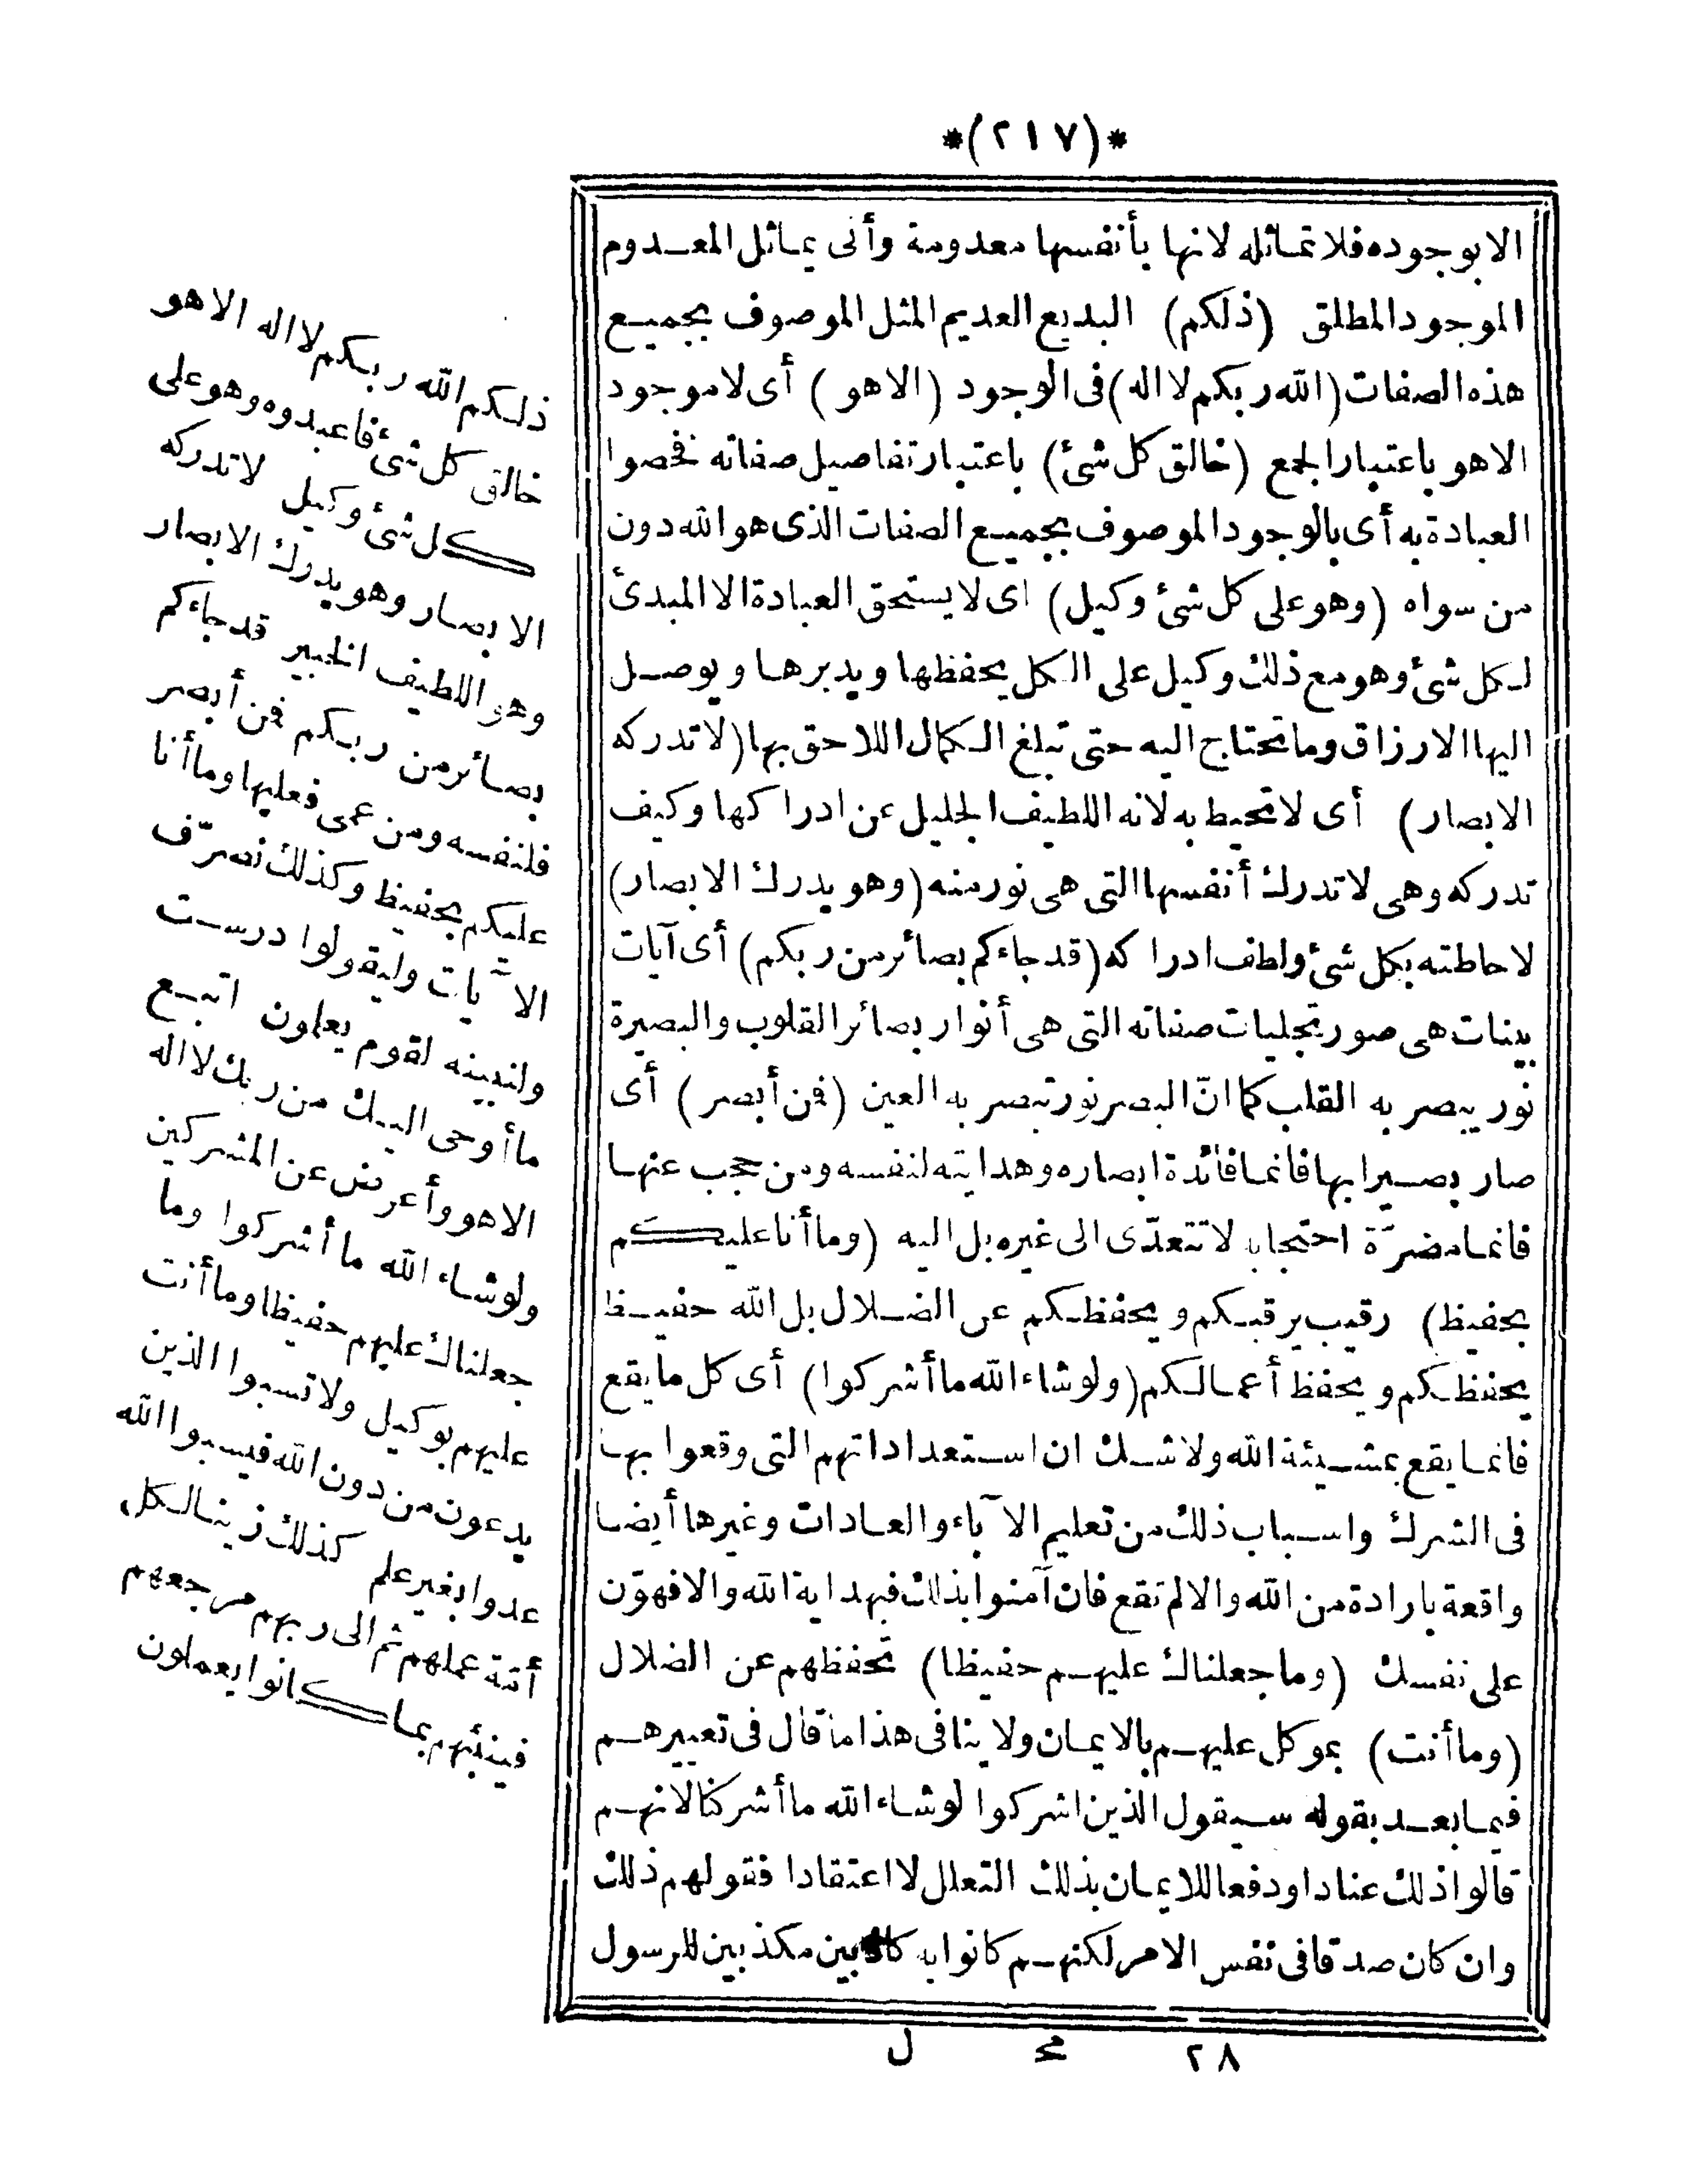 *(٢١٧)*
الا بوجوده فلا تماثله لانها بأنفسها معدومة وأنى يماثل المعدوم
الموجود المطلق (ذلكم) البديع العديم المثل الموصوف بجميع
هذه الصفات (الله ربكم لا اله) فى الوجود (الا هو) أى لا موجود
الا هو باعتبار الجمع (خالق كل شئ) باعتبار تفاصيل صفاته فخصوا
العبادة به أى بالوجود الموصوف بجميع الصفات الذى هو الله دون
من سواه (وهو على كل شئ وكيل) اى لا يستحق العبادة الا المبدئ
لكل شئ وهو مع ذلك وكيل على الكل يحفظها ويدبرها ويوصل
اليها الارزاق وما تحتاج اليه حتى تبلغ الكمال اللاحق بها (لا تدركه
الابصار) أى لا تحيط به لانه اللطيف الجليل عن ادراكها وكيف
تدركه وهى لا تدرك أنفسها التى هى نور منه (وهو يدرك الابصار)
لاحاطته بكل شئ ولطف ادراكه (قد جاءكم بصائر من ربكم) أى آيات
بينات هى صور تجليات صفاته التى هى أنوار بصائر القلوب والبصيرة
نور يبصر به القلب كما انّ البصر نور تبصر به العين (فمن أبصر) أى
صار بصيرا بها فانما فائدة ابصاره وهدايته لنفسه ومن حجب عنها
فانما مضرّة احتجابه لا تتعدّى الى غيره بل اليه (وما أنا عليكم
بحفيظ) رقيب يرقبكم ويحفظكم عن الضلال بل الله حفيظ
يحفظكم ويحفظ أعمالكم (ولو شاء الله ما أشركوا) أى كل ما يقع
فانما يقع بمشيئة الله ولا شك ان استعداداتهم التى وقعوا بها
فى الشرك واسباب ذلك من تعليم الآباء والعادات وغيرها أيضا
واقعة بارادة من الله والا لم تقع فان آمنوا بذلك فبهداية الله والا فهوّن
على نفسك (وما جعلناك عليهم حفيظا) تحفظهم عن الضلال
(وما أنت) بموكل عليهم بالايمان ولا ينافى هذا ما قال فى تعييرهم
فيما بعد بقوله سيقول الذين اشركوا لو شاء الله ما أشركنا لانهم
قالوا ذلك عنادا ودفعا للايمان بذلك التعلل لا اعتقادا فقولهم ذلك
وان كان صدقا فى نفس الامر لكنهم كانوا به كاذبين مكذبين للرسول
ذلكم الله ربكم لا اله الا هو
خالق كل شئ فاعبدوه وهو على
كل شئ وكيل لا تدركه
الابصار وهو يدرك الابصار
وهو اللطيف الخبير قد جاءكم
بصائر من ربكم فمن أبصر
فلنفسه ومن عمى فعليها وما أنا
عليكم بحفيظ وكذلك نصرّف
الآيات وليقولوا درست
ولنبينه لقوم يعلمون اتبع
ما أوحى اليك من ربك لا اله
الا هو وأعرض عن المشركين
ولو شاء الله ما أشركوا وما
جعلناك عليهم حفيظا وما أنت
عليهم بوكيل ولا تسبوا الذين
يدعون من دون الله فيسبوا الله
عدوا بغير علم كذلك زينا لكل
أمّة عملهم ثم الى ربهم مرجعهم
فينبئهم بما كانوا يعملون
٢٨ مح ل